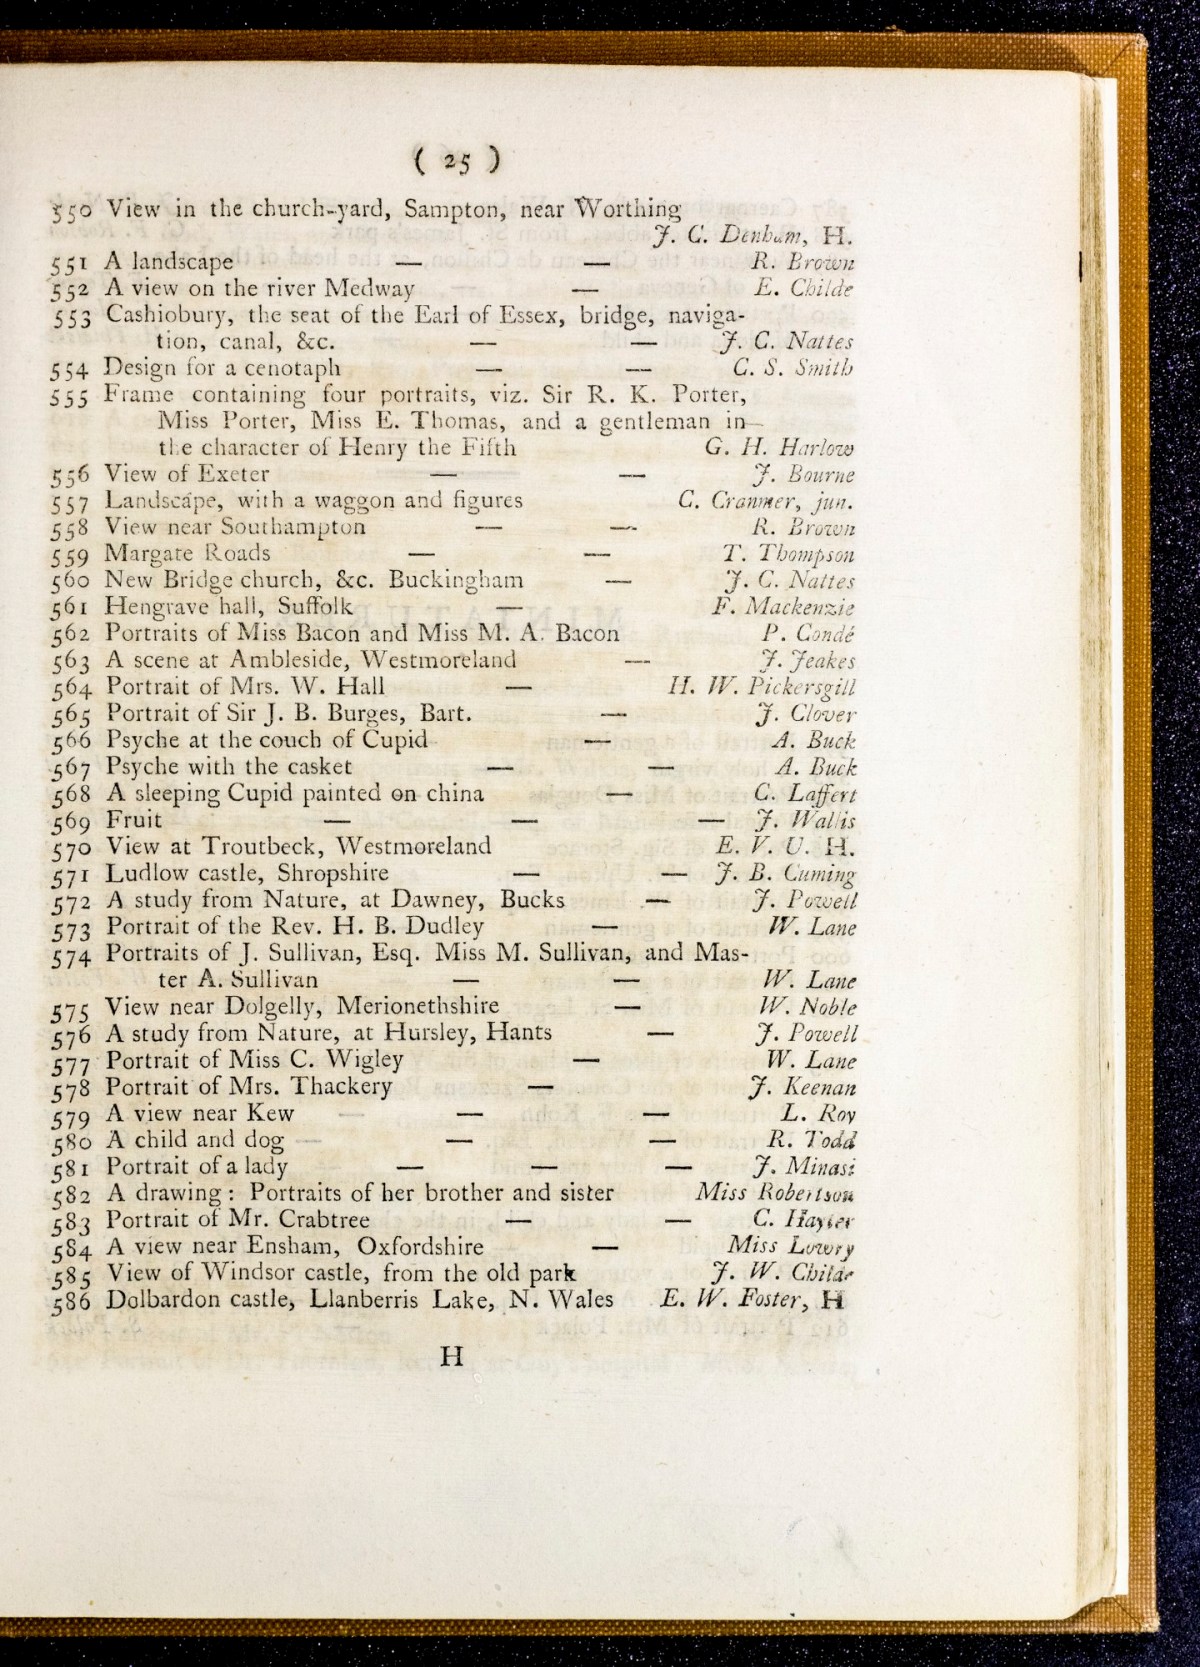 ( 25 )
550 View in the church-yard, Sampton, near Worthing
J. C. Denham, H.
551 A landscape — — R. Brown
552 A view on the river Medway — E. Childe
553 Cashiobury, the seat of the Earl of Essex, bridge, naviga-
tion, canal, &c. — — J. C. Nattes
554 Design for a cenotaph — — C. S. Smith
555 Frame containing four portraits, viz. Sir R. K. Porter,
Miss Porter, Miss E. Thomas, and a gentleman in
the character of Henry the Fifth G. H. Harlow
556 View of Exeter — — J. Bourne
557 Landscape, with a waggon and figures C. Cranmer, jun.
558 View near Southampton — — R. Brown
559 Margate Roads — — T. Thompson
560 New Bridge church, &c. Buckingham — J. C. Nattes
561 Hengrave hall, Suffolk — F. Mackenzie
562 Portraits of Miss Bacon and Miss M. A. Bacon P. Condé
563 A scene at Ambleside, Westmoreland — J. Jeakes
564 Portrait of Mrs. W. Hall — H. W. Pickersgill
565 Portrait of Sir J. B. Burges, Bart. — J. Clover
566 Psyche at the couch of Cupid — A. Buck
567 Psyche with the casket — — A. Buck
568 A sleeping Cupid painted on china — C. Laffert
569 Fruit — — — J. Wallis
570 View at Troutbeck, Westmoreland E. V. U. H.
571 Ludlow castle, Shropshire — — J. B. Cuming
572 A study from Nature, at Dawney, Bucks — J. Powell
573 Portrait of the Rev. H. B. Dudley — W. Lane
574 Portraits of J. Sullivan, Esq. Miss M. Sullivan, and Mas-
ter A. Sullivan — — W. Lane
575 View near Dolgelly, Merionethshire — W. Noble
576 A study from Nature, at Hursley, Hants — J. Powell
577 Portrait of Miss C. Wigley — W. Lane
578 Portrait of Mrs. Thackery — J. Keenan
579 A view near Kew — — L. Roy
580 A child and dog — — R. Todd
581 Portrait of a lady — — — J. Minasi
582 A drawing : Portraits of her brother and sister Miss Robertson
583 Portrait of Mr. Crabtree — — C. Hayter
584 A view near Ensham, Oxfordshire — Miss Lowry
585 View of Windsor castle, from the old park J. W. Childe
586 Dolbardon castle, Llanberris Lake, N. Wales E. W. Foster, H
H